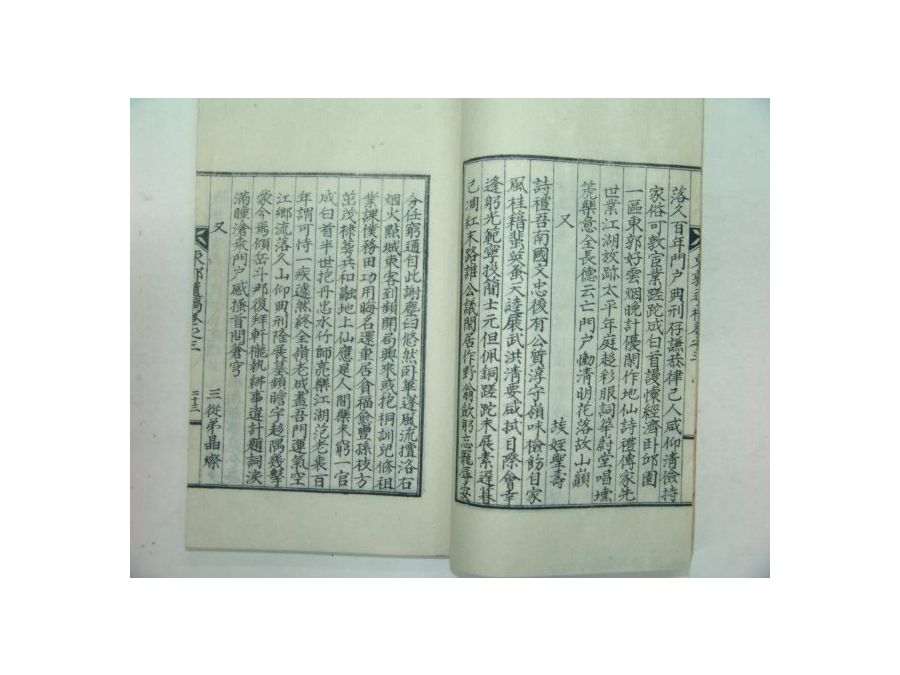 落久百年門户典刑存謙恭律己人咸仰清儉持
家俗可敦宦業蹉跎成白首謾懷經濟卧邱園
一區東郭好雲烟晚計優閑作地仙詩禮傳家先
世業江湖放跡太平年庭趍彩服詞華蔚堂唱壎
篪樂意全長德云亡門户慟清明花落故山巓
又
族姪聖壽
詩禮吾南國文忠後有公質淳守嶺味檢飭自家
風桂籍蜚英蚤天逵展武洪清要咸拭目際會幸
逢躬光範寧投簡士元但佩銅蹉跎未展素遲暮
已凋紅末路誰公議閑居作野翁飮躬忘寵辱安
分任窮通自此謝塵臼悠然卧華蓬風流擅洛石
烟火點城東客到頻開局興來或抱桐訓兒修祖
業課僕務田功用晦名還重居貧福愈豐孫枝方
茁茂棣萼共和融地上仙應是人間樂未窮一官
成白首半世抱丹忠水竹師亮樂江湖范老衷百
年謂可恃一疾遽然終全嶺老成盡吾門運氣空
江鄉流落久山仰典刑隆展墓頻瞻宇趍隅幾擊
蒙今焉傾岳斗那復拜軒櫳執紼事違計題詞淚
滿瞳滄桑門户感搔首問蒼穹
又
三從弟晶燎
東郭遺稿卷之三
三十二